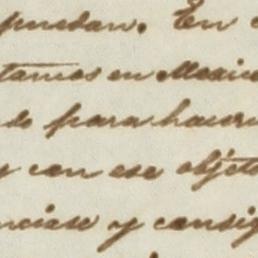 puedan. En
tamos en Mexico
do para hacer
y con ese objeto
nciase y consig